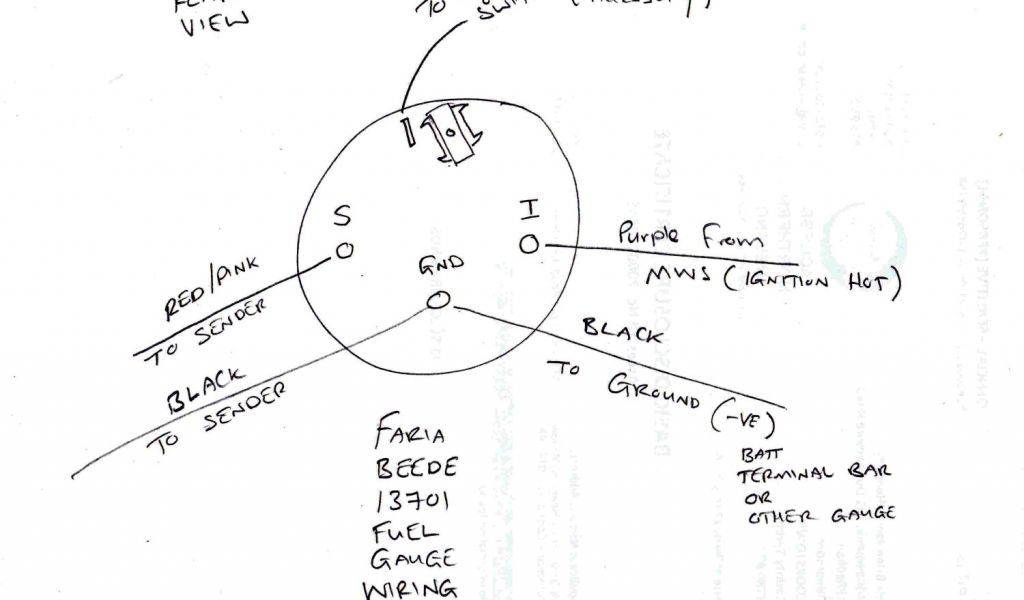 VIEW
TO
S
I
GND
Purple From
MWS (IGNITION HOT)
RED/PINK
TO SENDER
BLACK
TO SENDER
BLACK
TO GROUND (-VE)
BATT
TERMINAL BAR
OR
OTHER GAUGE
FARIA
BEEDE
13701
FUEL
GAUGE
WIRING